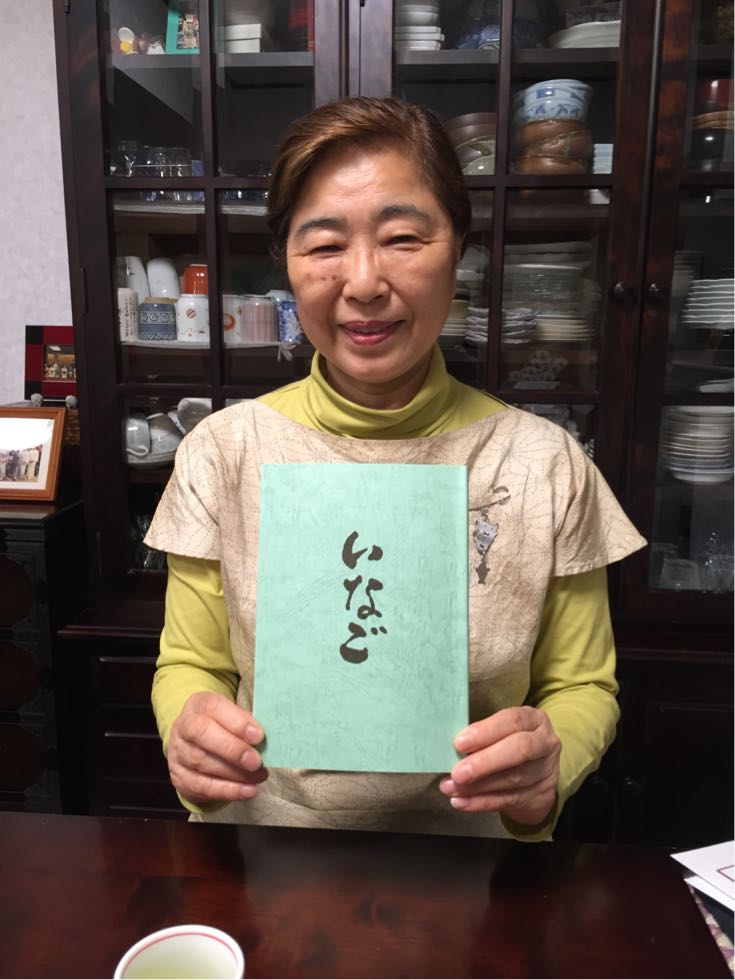 いなご